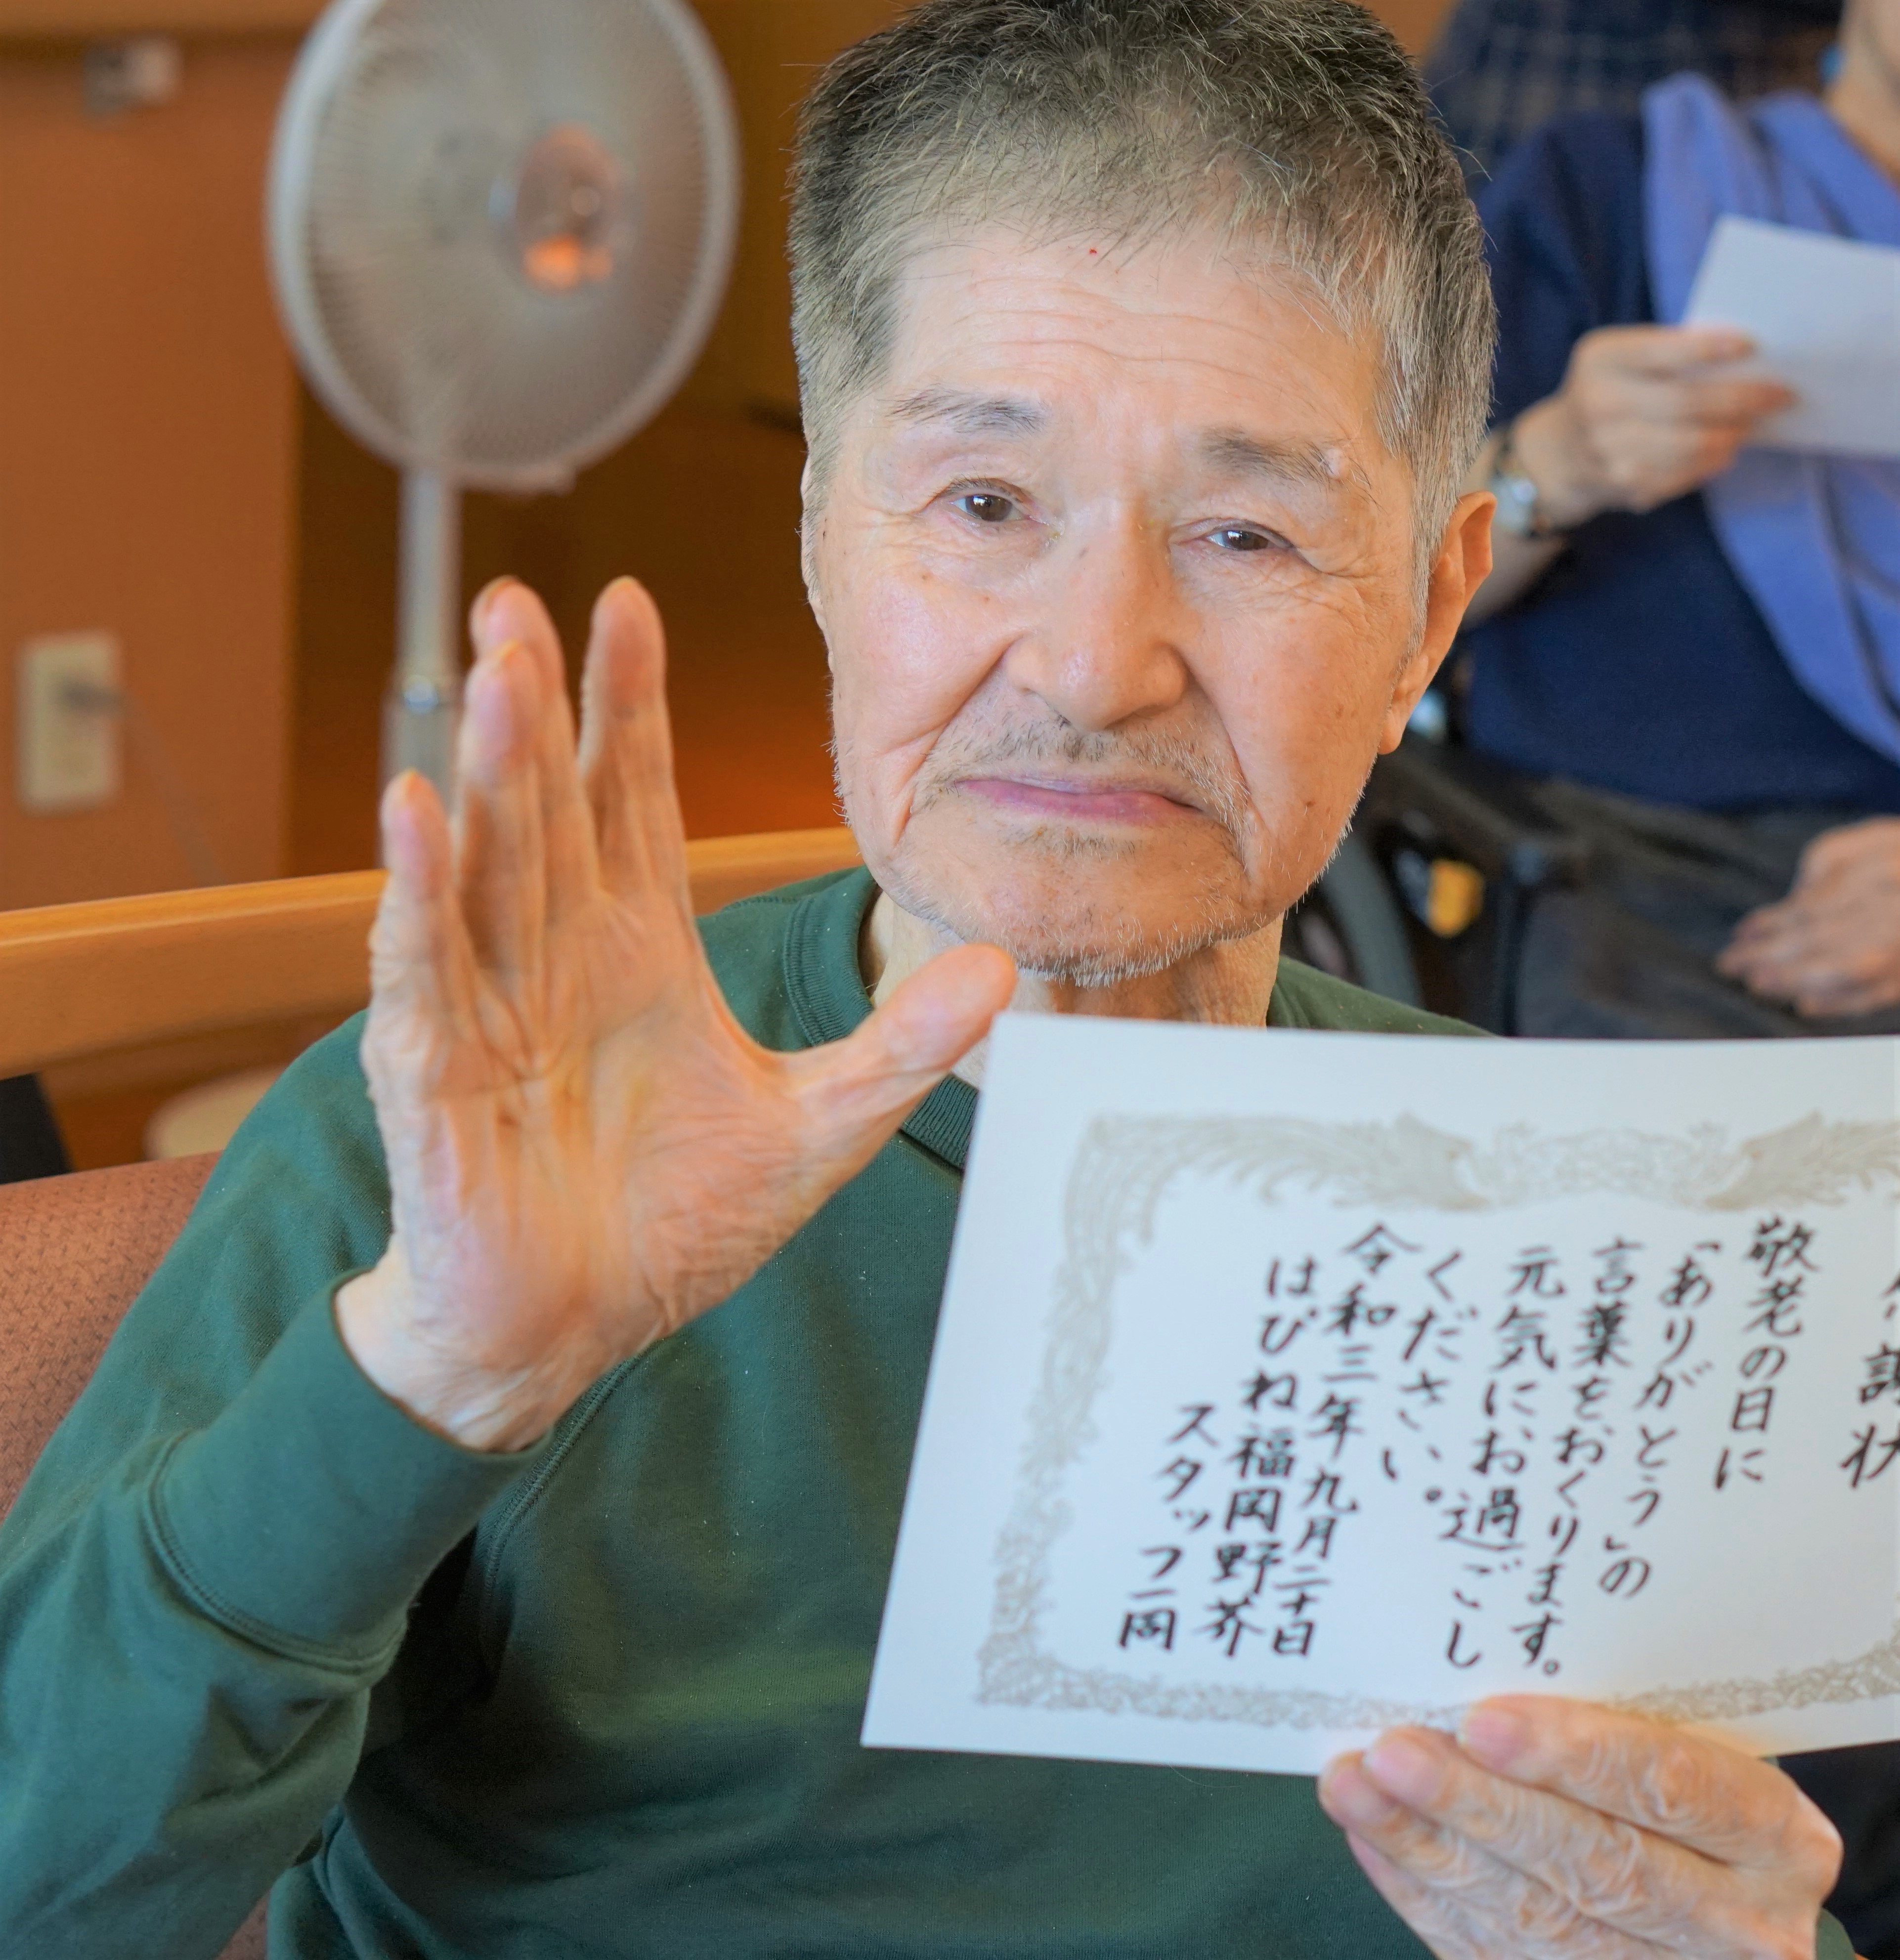 謝状
敬老の日に
「ありがとう」の
言葉をおくります。
元気に、お過ごし
ください。
令和三年九月二十日
はぴね福岡野芥
スタッフ一同